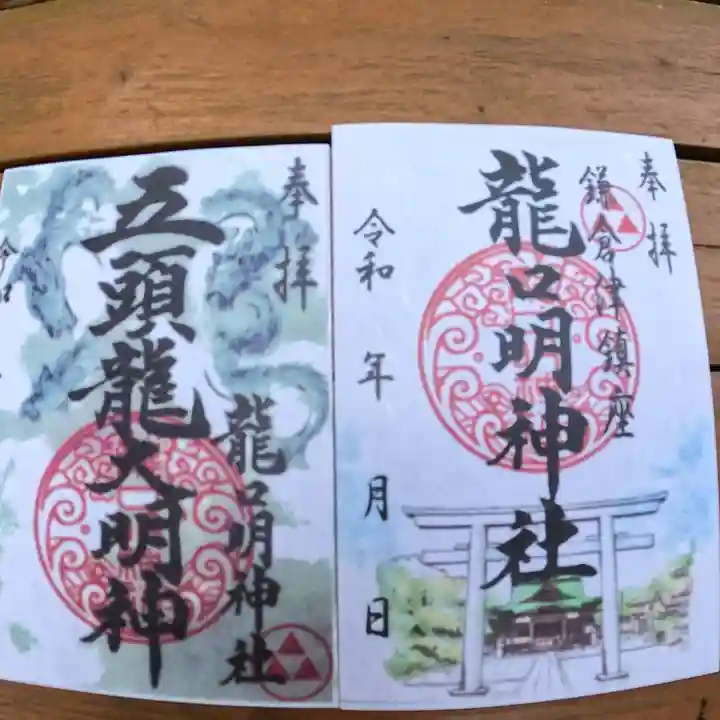 奉拝
五頭龍大明神
龍口明神社
令和
奉拝
鎌倉津鎮座
龍口明神社
令和 年 月 日